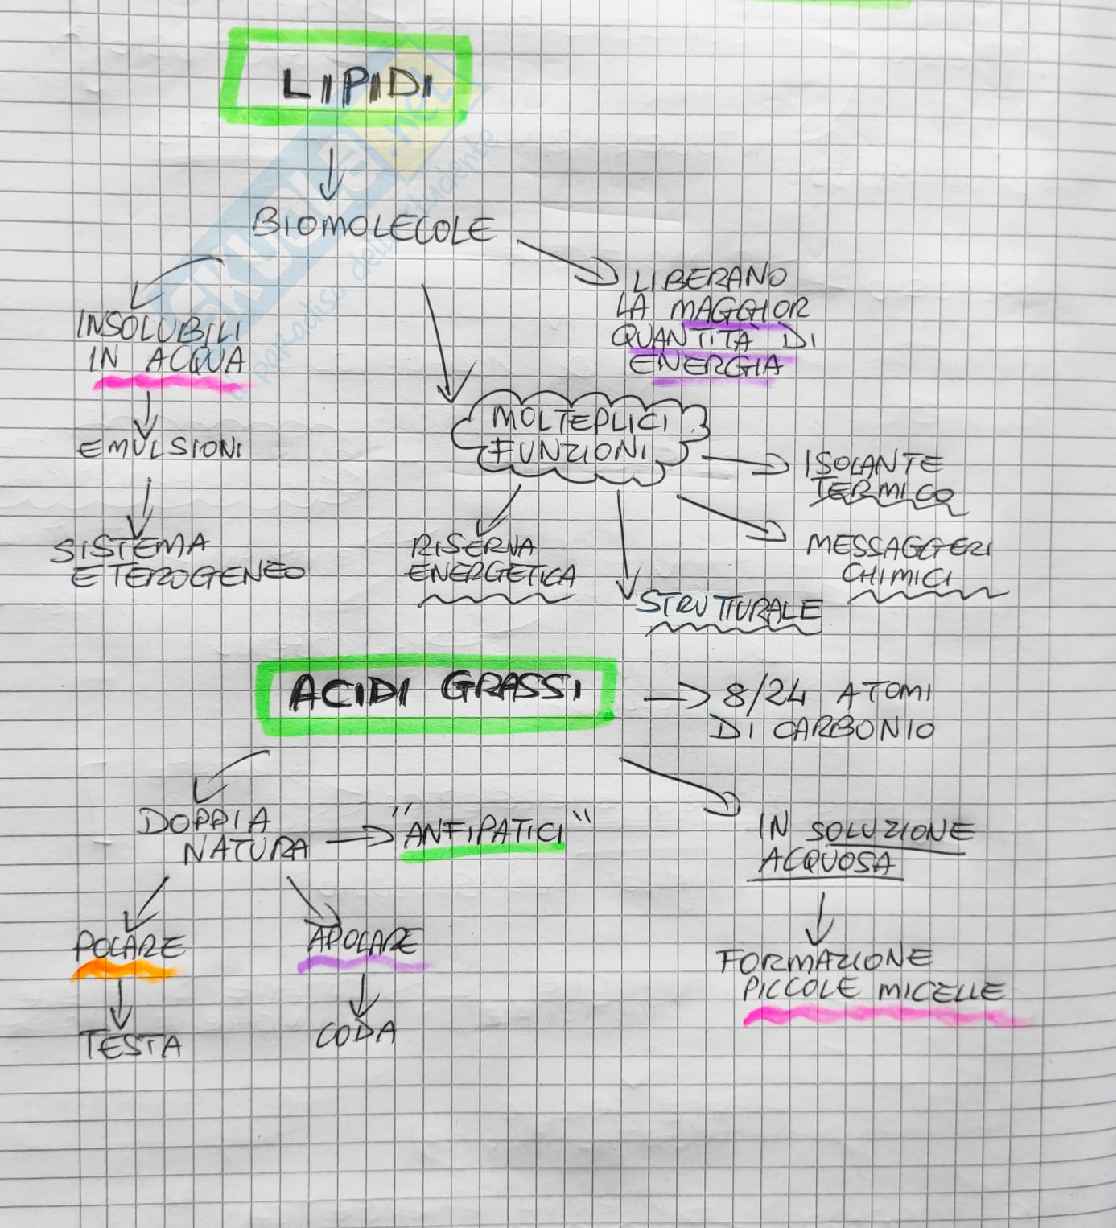 LIPIDI
BIOMOLECOLE
INSOLUBILI
IN ACQUA
EMULSIONI
SISTEMA
ETEROGENEO
LIBERANO
LA MAGGIOR
QUANTITÀ DI
ENERGIA
MOLTEPLICI
FUNZIONI
ISOLANTE
TERMICO
MESSAGGERI
CHIMICI
STRUTTURALE
RISERVA
ENERGETICA
ACIDI GRASSI
8/24 ATOMI
DI CARBONIO
DOPPIA
NATURA
"ANFIPATICI"
POLARE
TESTA
APOLARE
CODA
IN SOLUZIONE
ACQUOSA
FORMAZIONE
PICCOLE MICELLE
SKUOLA.net